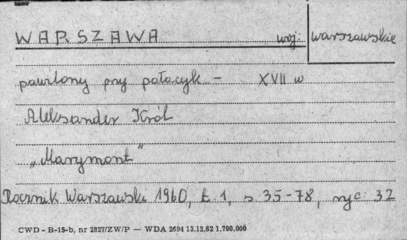 WARSZAWA woj: warszawskie
pawilony przy pałacyk - XVII w
Aleksander Król
„Marymont”
Rocznik Warszawski 1960, t. 1, s. 35-78, ryc. 32
CWD - B-15-b, nr 2827/ZW/P — WDA 2694 13.12.62 1.700.000